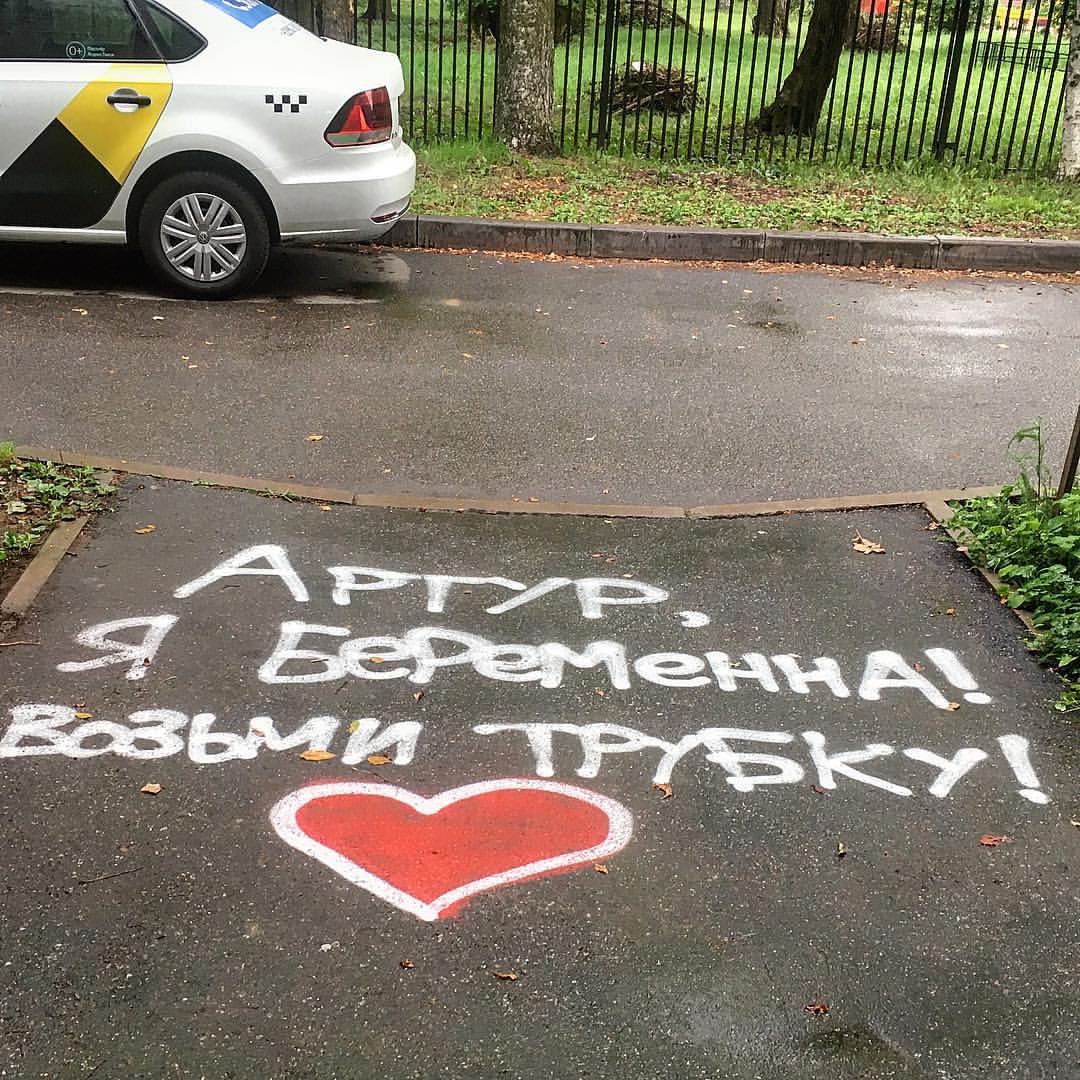 0+
Артур,
Я Беременна!
Возьми трубку!